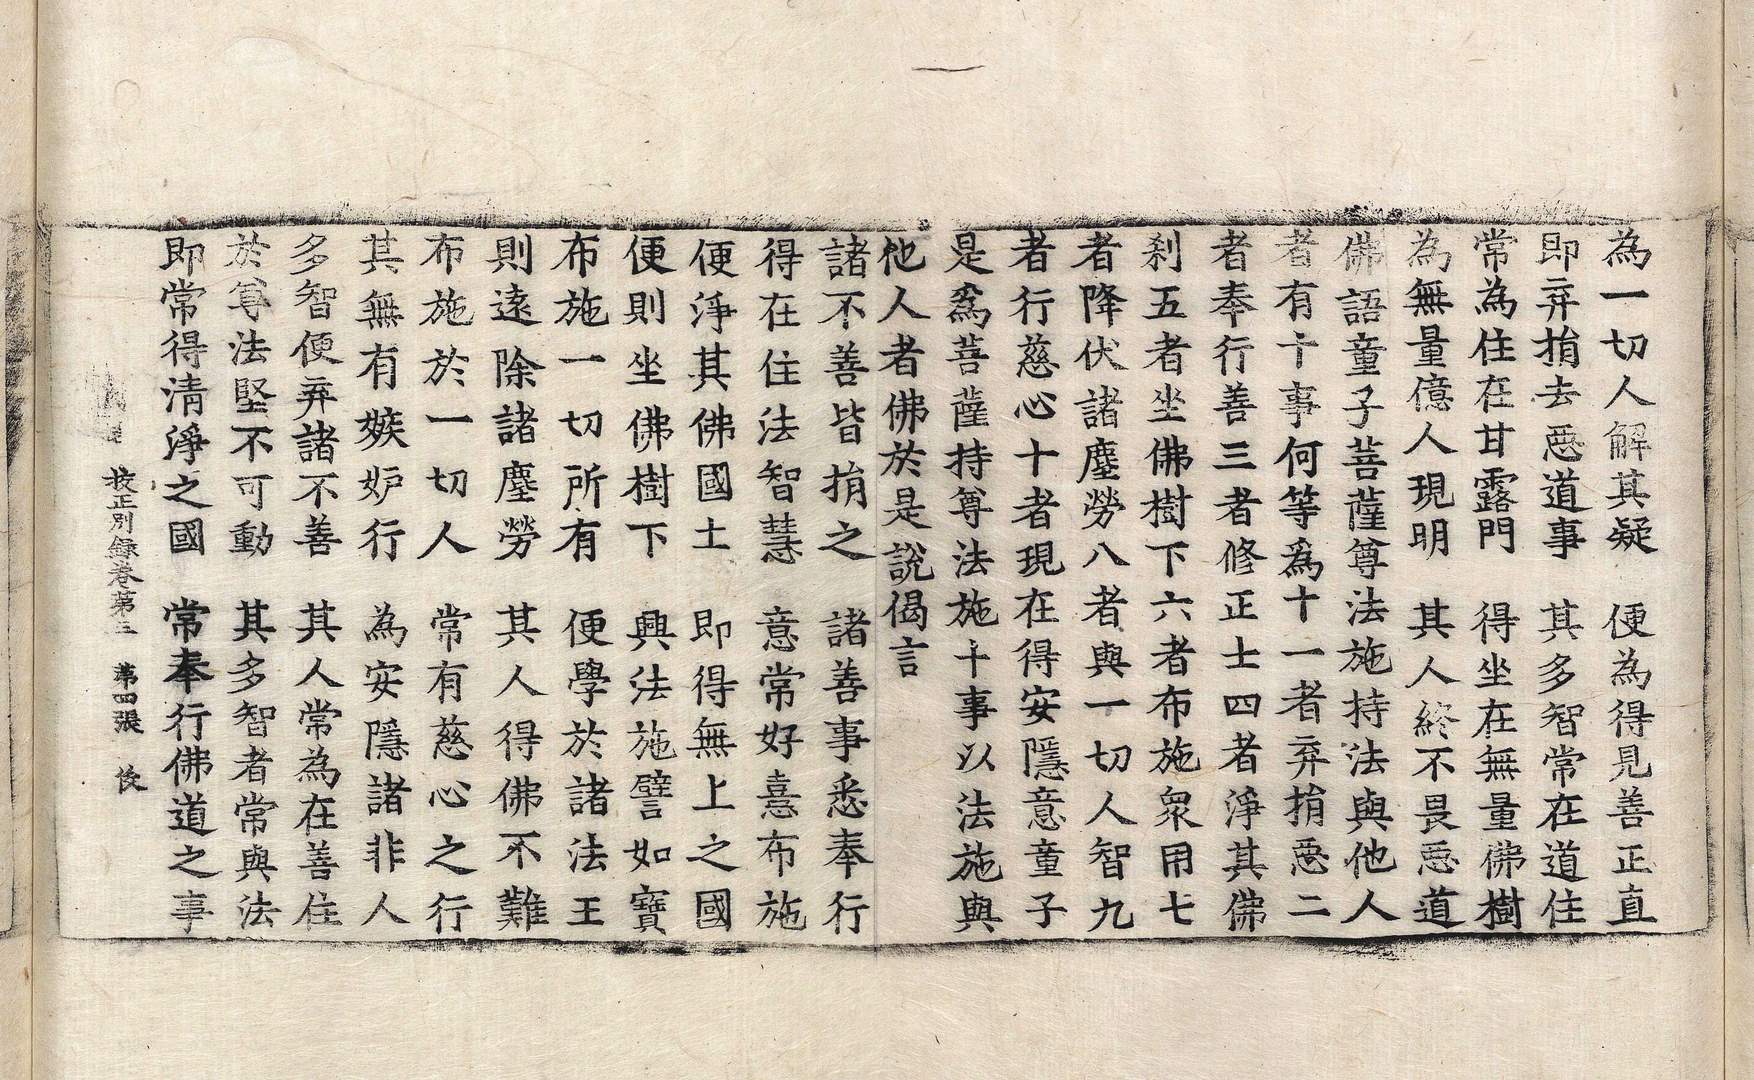 為一切人解其疑　便為得見善正直
即弃捐去惡道事　其多智常在道住
常為住在甘露門　得坐在無量佛樹
為無量億人現明　其人終不畏惡道
佛語童子菩薩尊法施持法與他人
者有十事何等爲十一者弃捐惡二
者奉行善三者修正士四者淨其佛
刹五者坐佛樹下六者布施衆用七
者降伏諸塵勞八者與一切人智九
者行慈心十者現在得安隱意童子
是爲菩薩持尊法施十事以法施與
他人者佛於是說偈言
諸不善皆捐之　諸善事悉奉行
得在住法智慧　意常好憙布施
便淨其佛國土　即得無上之國
便則坐佛樹下　興法施譬如寶
布施一切所有　便學於諸法王
則遠除諸塵勞　其人得佛不難
布施於一切人　常有慈心之行
其無有嫉妒行　為安隱諸非人
多智便弃諸不善　其人常為在善住
於尊法堅不可動　其多智者常與法
即常得清淨之國　常奉行佛道之事
校正別錄卷第三　第四張